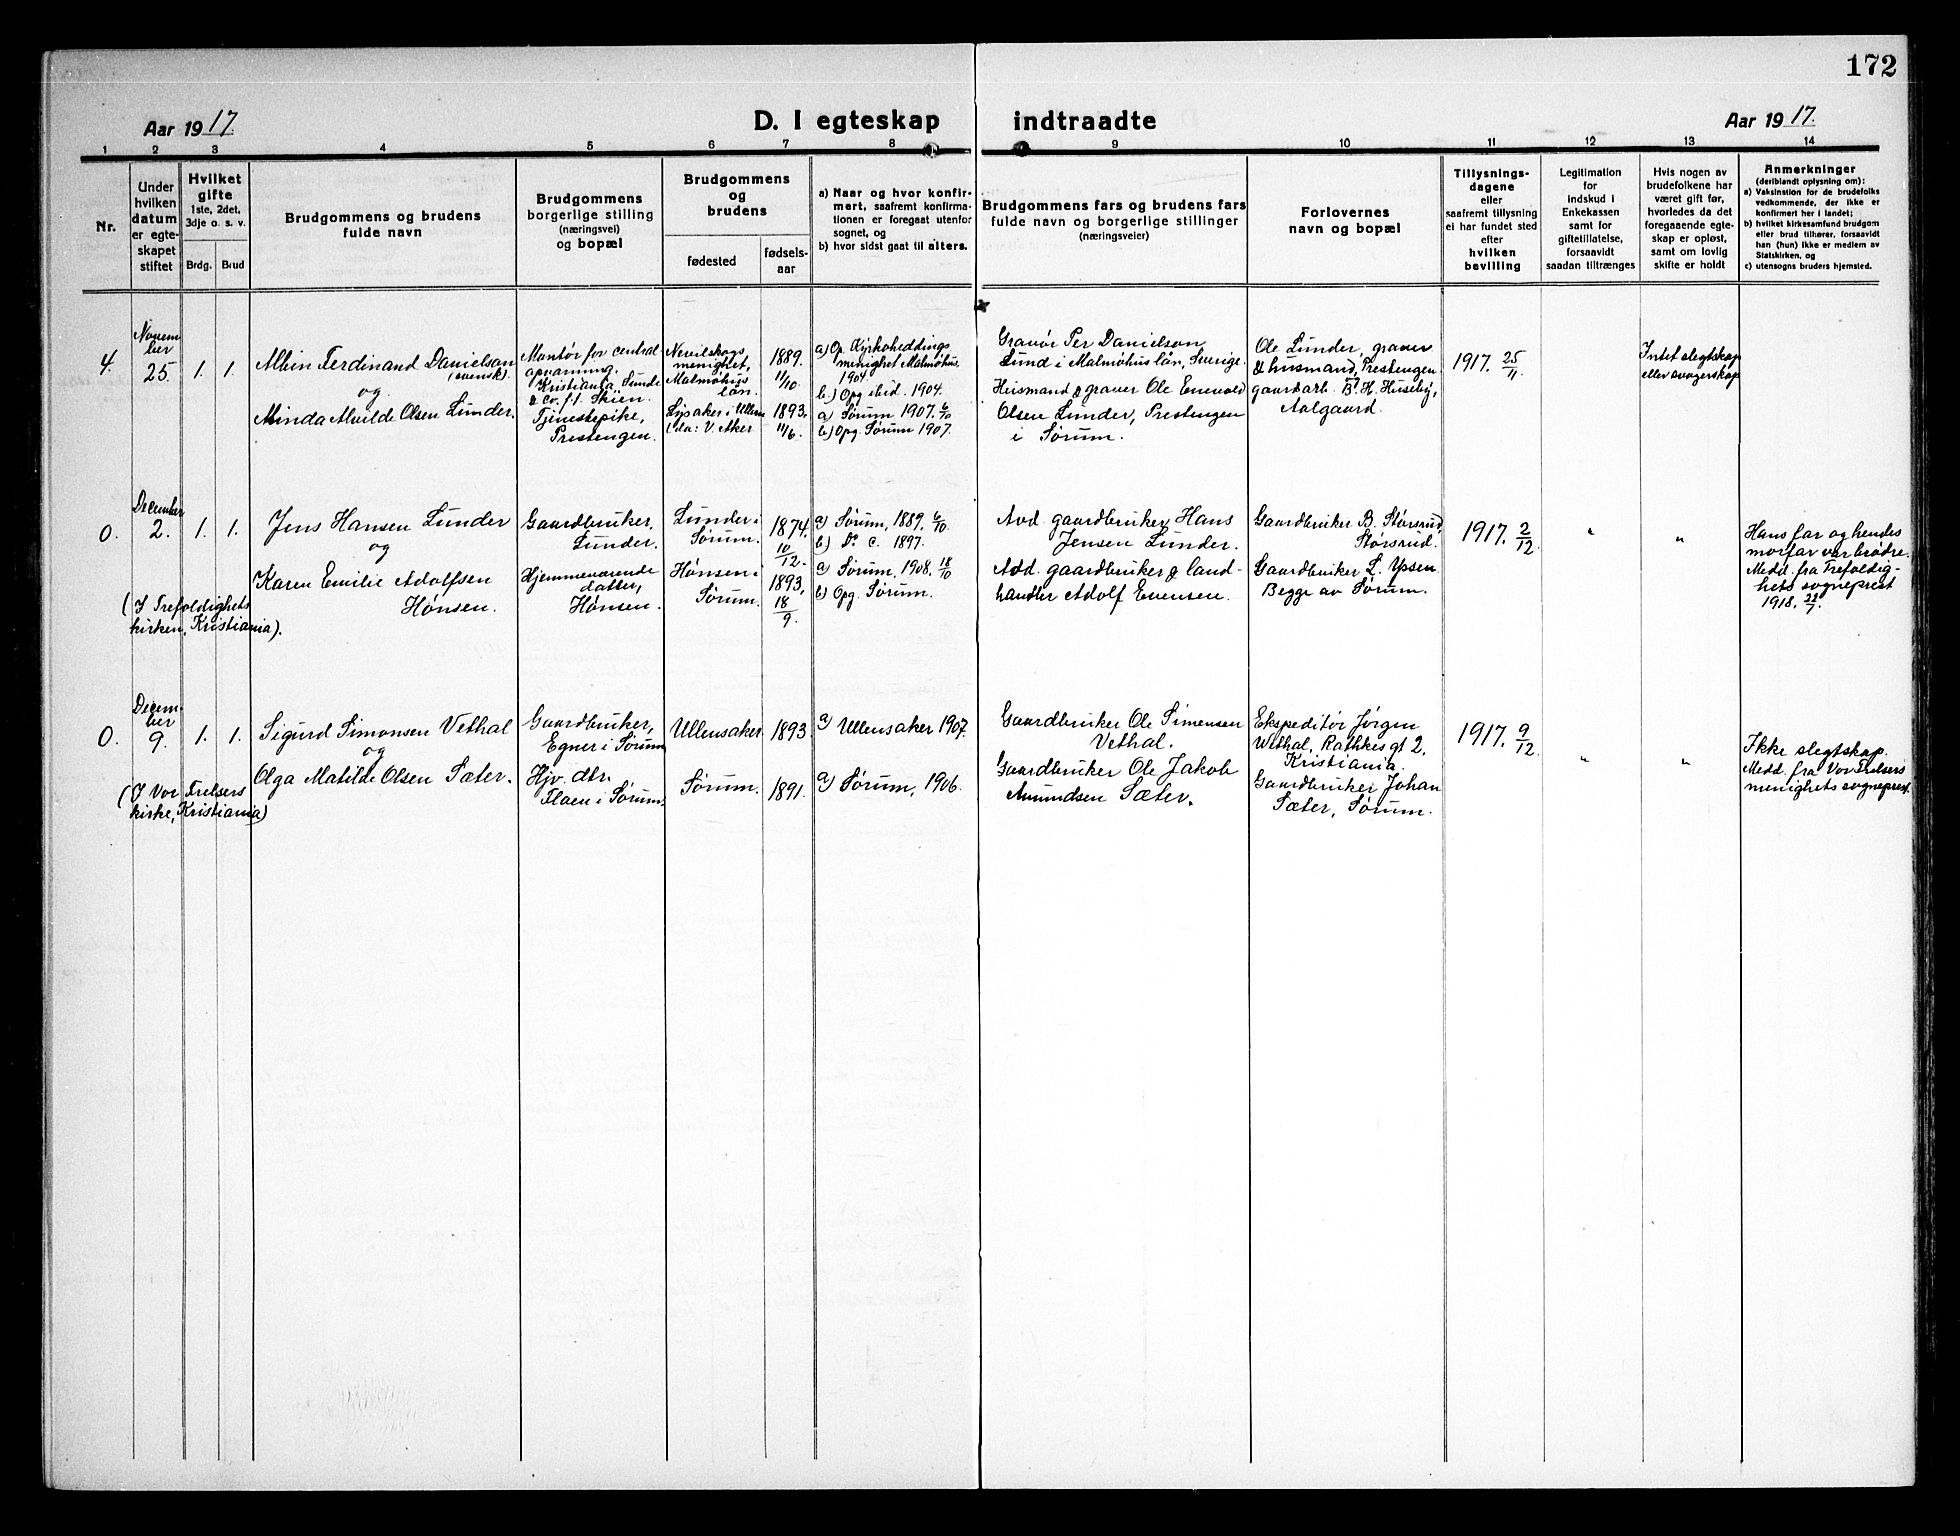 172
Aar 1917.
D. I egteskap indtraadte
Aar 1917.
1 2 3 4 5 6 7 8 9 10 11 12 13 14
Nr.
Under
hvilken
datum
er egte-
skapet
stiftet
Hvilket
gifte
1ste, 2det,
3dje o. s. v.
Brdg. Brud
Brudgommens og brudens
fulde navn
Brudgommens
borgerlige stilling
(næringsvei)
og bopæl
Brudgommens
og
brudens
fødested
fødsels-
aar
a) Naar og hvor konfir-
mert, saafremt konfirma-
tionen er foregaat utenfor
sognet, og
b) hvor sidst gaat til alters.
Brudgommens fars og brudens fars
fulde navn og borgerlige stillinger
(næringsveier)
Forlovernes
navn og bopæl
Tillysnings-
dagene
eller
saafremt tillysning
ei har fundet sted
efter
hvilken
bevilling
Legitimation
for
indskud i
Enkekassen
samt for
giftetillatelse,
forsaavidt
saadan tiltrænges
Hvis nogen av
brudefolkene har
været gift før,
hvorledes da det
foregaaende egte-
skap er opløst,
samt om lovlig
skifte er holdt
Anmerkninger
(deriblandt oplysning om):
a) Vaksination for de brudefolks
vedkommende, der ikke er
konfirmert her i landet;
b) hvilket kirkesamfund brudgom
eller brud tilhører, forsaavidt
han (hun) ikke er medlem av
Statskirken, og
c) utensogns bruders hjemsted.
4.
Novem-
ber
25.
1. 1.
Albin Ferdinand Danielsson
(svensk).
og
Minda Alvilde Olsen Lunder.
Montør for central-
opvarming.
Kristiania, Sunde
& Co. f. t. Skien.
Tjenestepike,
Prestengen.
menighet,
Malmöhus
län.
Lysaker i Ullern
V. Aker
1889.
11/10.
1893.
11/6.
menighet Malmöhus,
1904.
b.) Opg sted. 1904.
a) Sørum 1907. 6/10
b) Opg. Sørum 1907.
Gravør Per Danielson
Lund i Malmöhus län, Sverige.
Husmand & graver Ole Enevold
Olsen Lunder, Prestengen
i Sørum.
Ole Lunder, graver
& husmand, Prestengen
gaardarb. B. H. Huseby,
Aalgaard.
1917. 25/11.
Intet slegtskap
eller svogerskap
0.
December
2.
1. 1.
Jens Hansen Lunder
og
Karen Emilie Adolfsen
Hønsen.
(I Trefoldighets
kirken, Kristiania).
Gaardbruker,
Lunder.
Hjemmeværende
datter,
Hønsen.
Lunder i
Sørum.
Hønsen i
Sørum.
1874.
10/12
1893,
18/9.
a) Sørum, 1889. 6/10
b) Do. C. 1897.
a) Sørum, 1908. 18/10
b) Opg. Sørum.
Avd. gaardbruker Hans
Jensen Lunder.
Avd. gaardbruker & land-
handler Adolf Evensen.
Gaardbruker B. Størsrud,
Størsrud.
Gaardbruker L. Ypsen.
Begge av Sørum.
1917. 2/12
"
"
Hans far og hendes
morfar var brødre.
Medd. fra Trefoldig-
hets sogneprest
1918. 22/7.
0.
Decem-
ber
9.
1. 1.
Sigurd Simonsen Vethal
og
Olga Matilde Olsen Sæter.
(I Vor Frelsers
kirke, Kristiania)
Gaardbruker,
Egner i Sørum
Hjv. dtr.
Flaen i Sørum.
Ullensaker
Sørum.
1893
1891.
a) Ullensaker 1907.
a) Sørum, 1906.
Gaardbruker Ole Simensen
Vethal.
Gaardbruker Ole Jakob
Amundsen Sæter.
Ekspeditør Jørgen
Wethal, Rathkesgt 2,
Kristiania.
Gaardbruker Johan
Sæter, Sørum.
1917. 9/12
"
"
Ikke slegtskap.
Medd. fra Vor Frelsers
menighets sogneprest